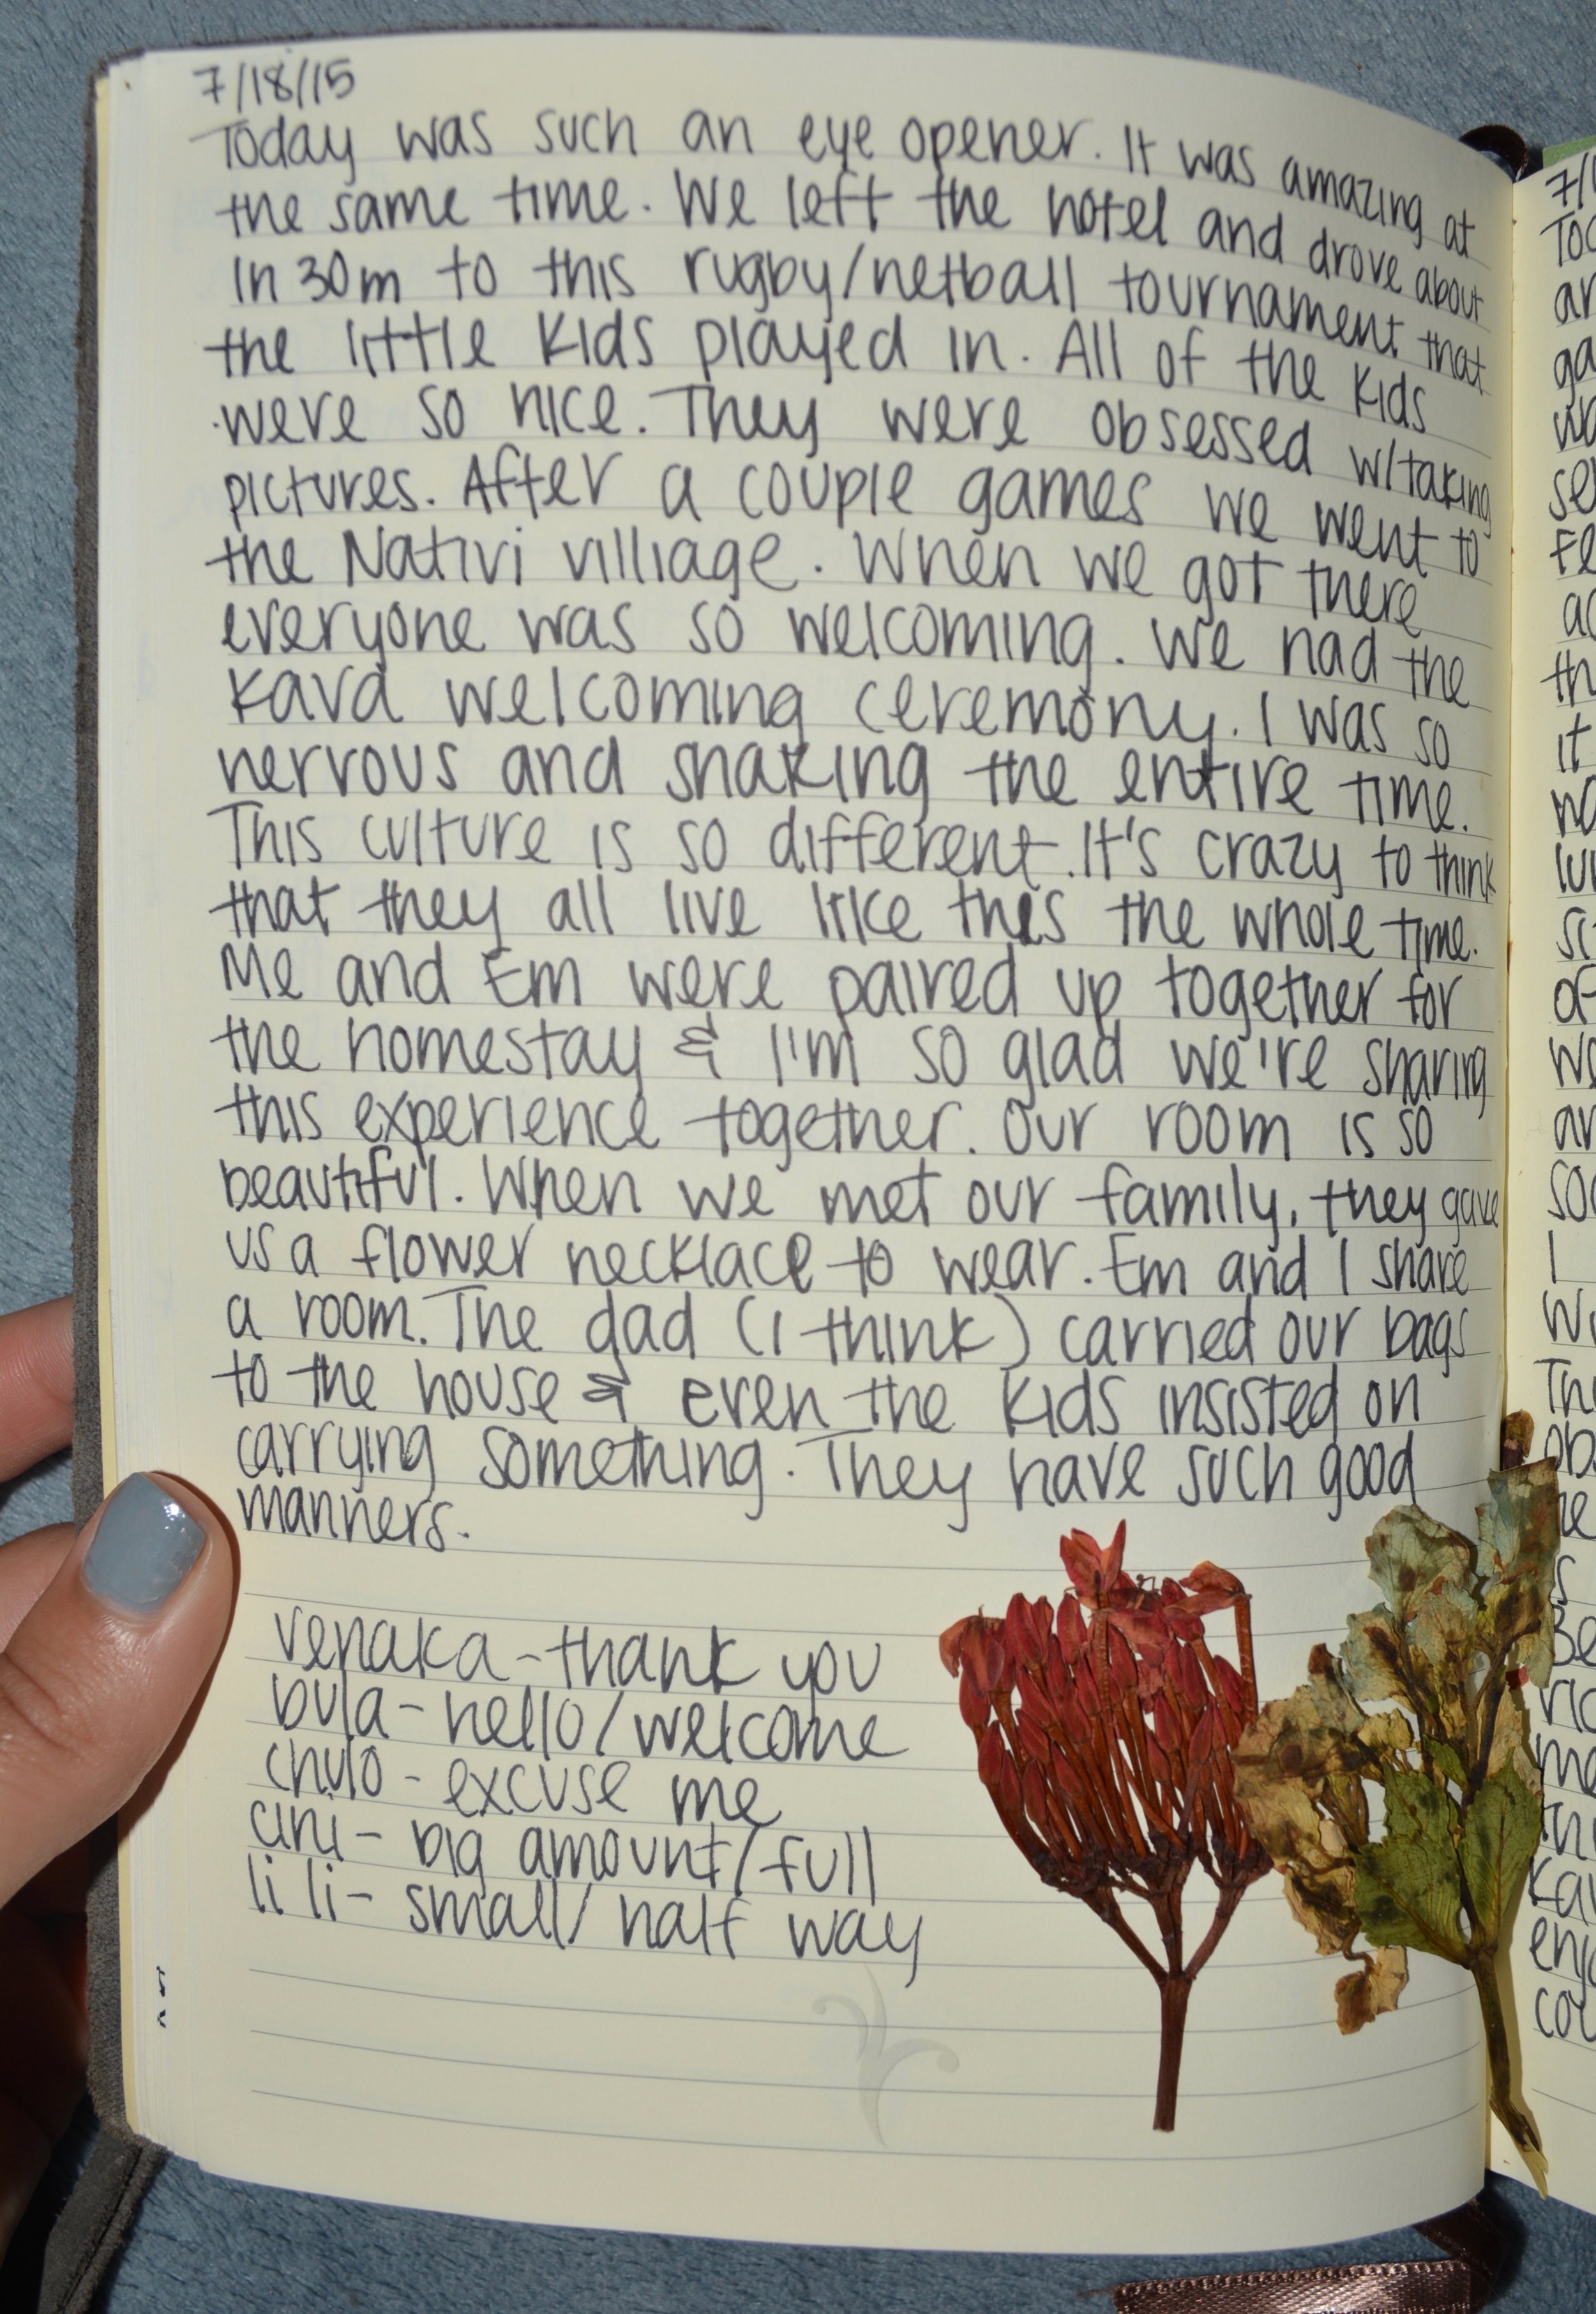 7/18/15
Today was such an eye opener. It was amazing at
the same time. We left the hotel and drove about
in 30m to this rugby/netball tournament that
the little kids played in. All of the kids
were so nice. They were obsessed w/taking
pictures. After a couple games we went to
the Nativi villiage. When we got there
everyone was so welcoming. We had the
Kava welcoming ceremony. I was so
nervous and shaking the entire time.
This culture is so different. It's crazy to think
that they all live like this the whole time.
Me and Em were paired up together for
the homestay & I'm so glad we're sharing
this experience together. Our room is so
beautiful. When we met our family, they gave
us a flower necklace to wear. Em and I share
a room. The dad (I think) carried our bags
to the house & even the kids insisted on
carrying something. They have such good
manners.
venaka - thank you
bula - hello/welcome
chulo - excuse me
cini - big amount/full
li li - small/half way